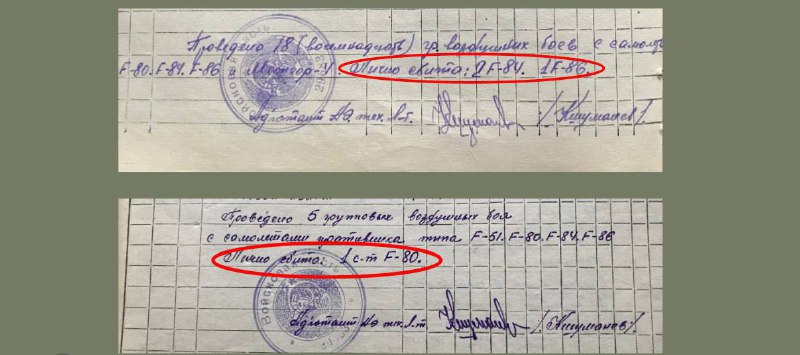 Проведено 18 (восемнадцать) гр. воздушных боёв с самолёт
F-80. F-84. F-86 и Метеор-4. Лично сбито: 2 F-84. 1 F-86.
Адъютант АЭ тех. л-т. /Кишманев/.
Проведено 5 групповых воздушных боя
с самолетами противника типа F-51. F-80. F-84. F-86
Лично сбито: 1 с-т F-80.
Войсковая часть
Адъютант АЭ тех. л-т